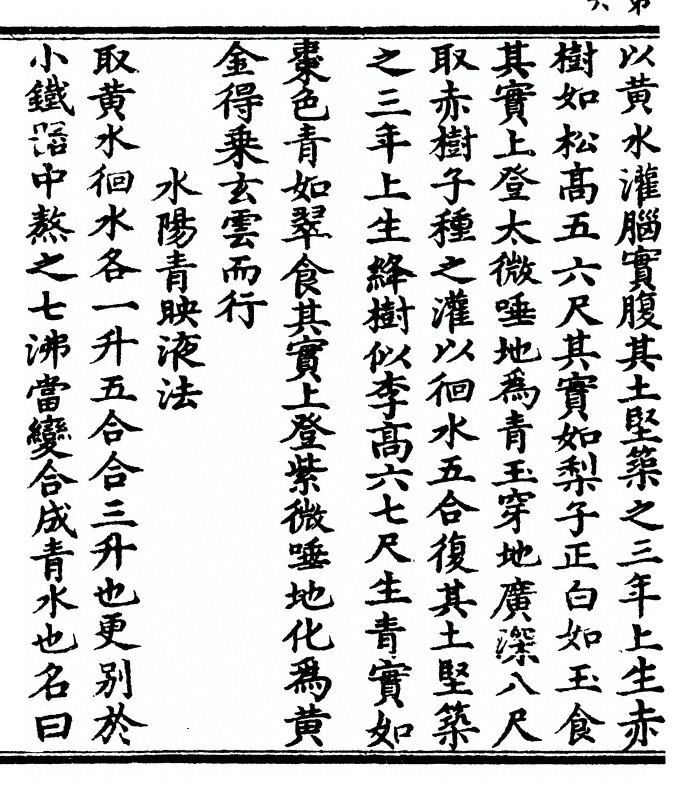 以黄水灌腦實腹其土堅築之三年上生赤
樹如松高五六尺其實如梨子正白如玉食
其實上登太微唾地爲青玉穿地廣深八尺
取赤樹子種之灌以徊水五合復其土堅築
之三年上生絳樹似李高六七尺生青實如
棗色青如翠食其實上登紫微唾地化爲黄
金得乗玄雲而行
水陽青映液法
取黄水徊水各一升五合合三升也更别於
小鐵中熬之七沸當變合成青水也名曰